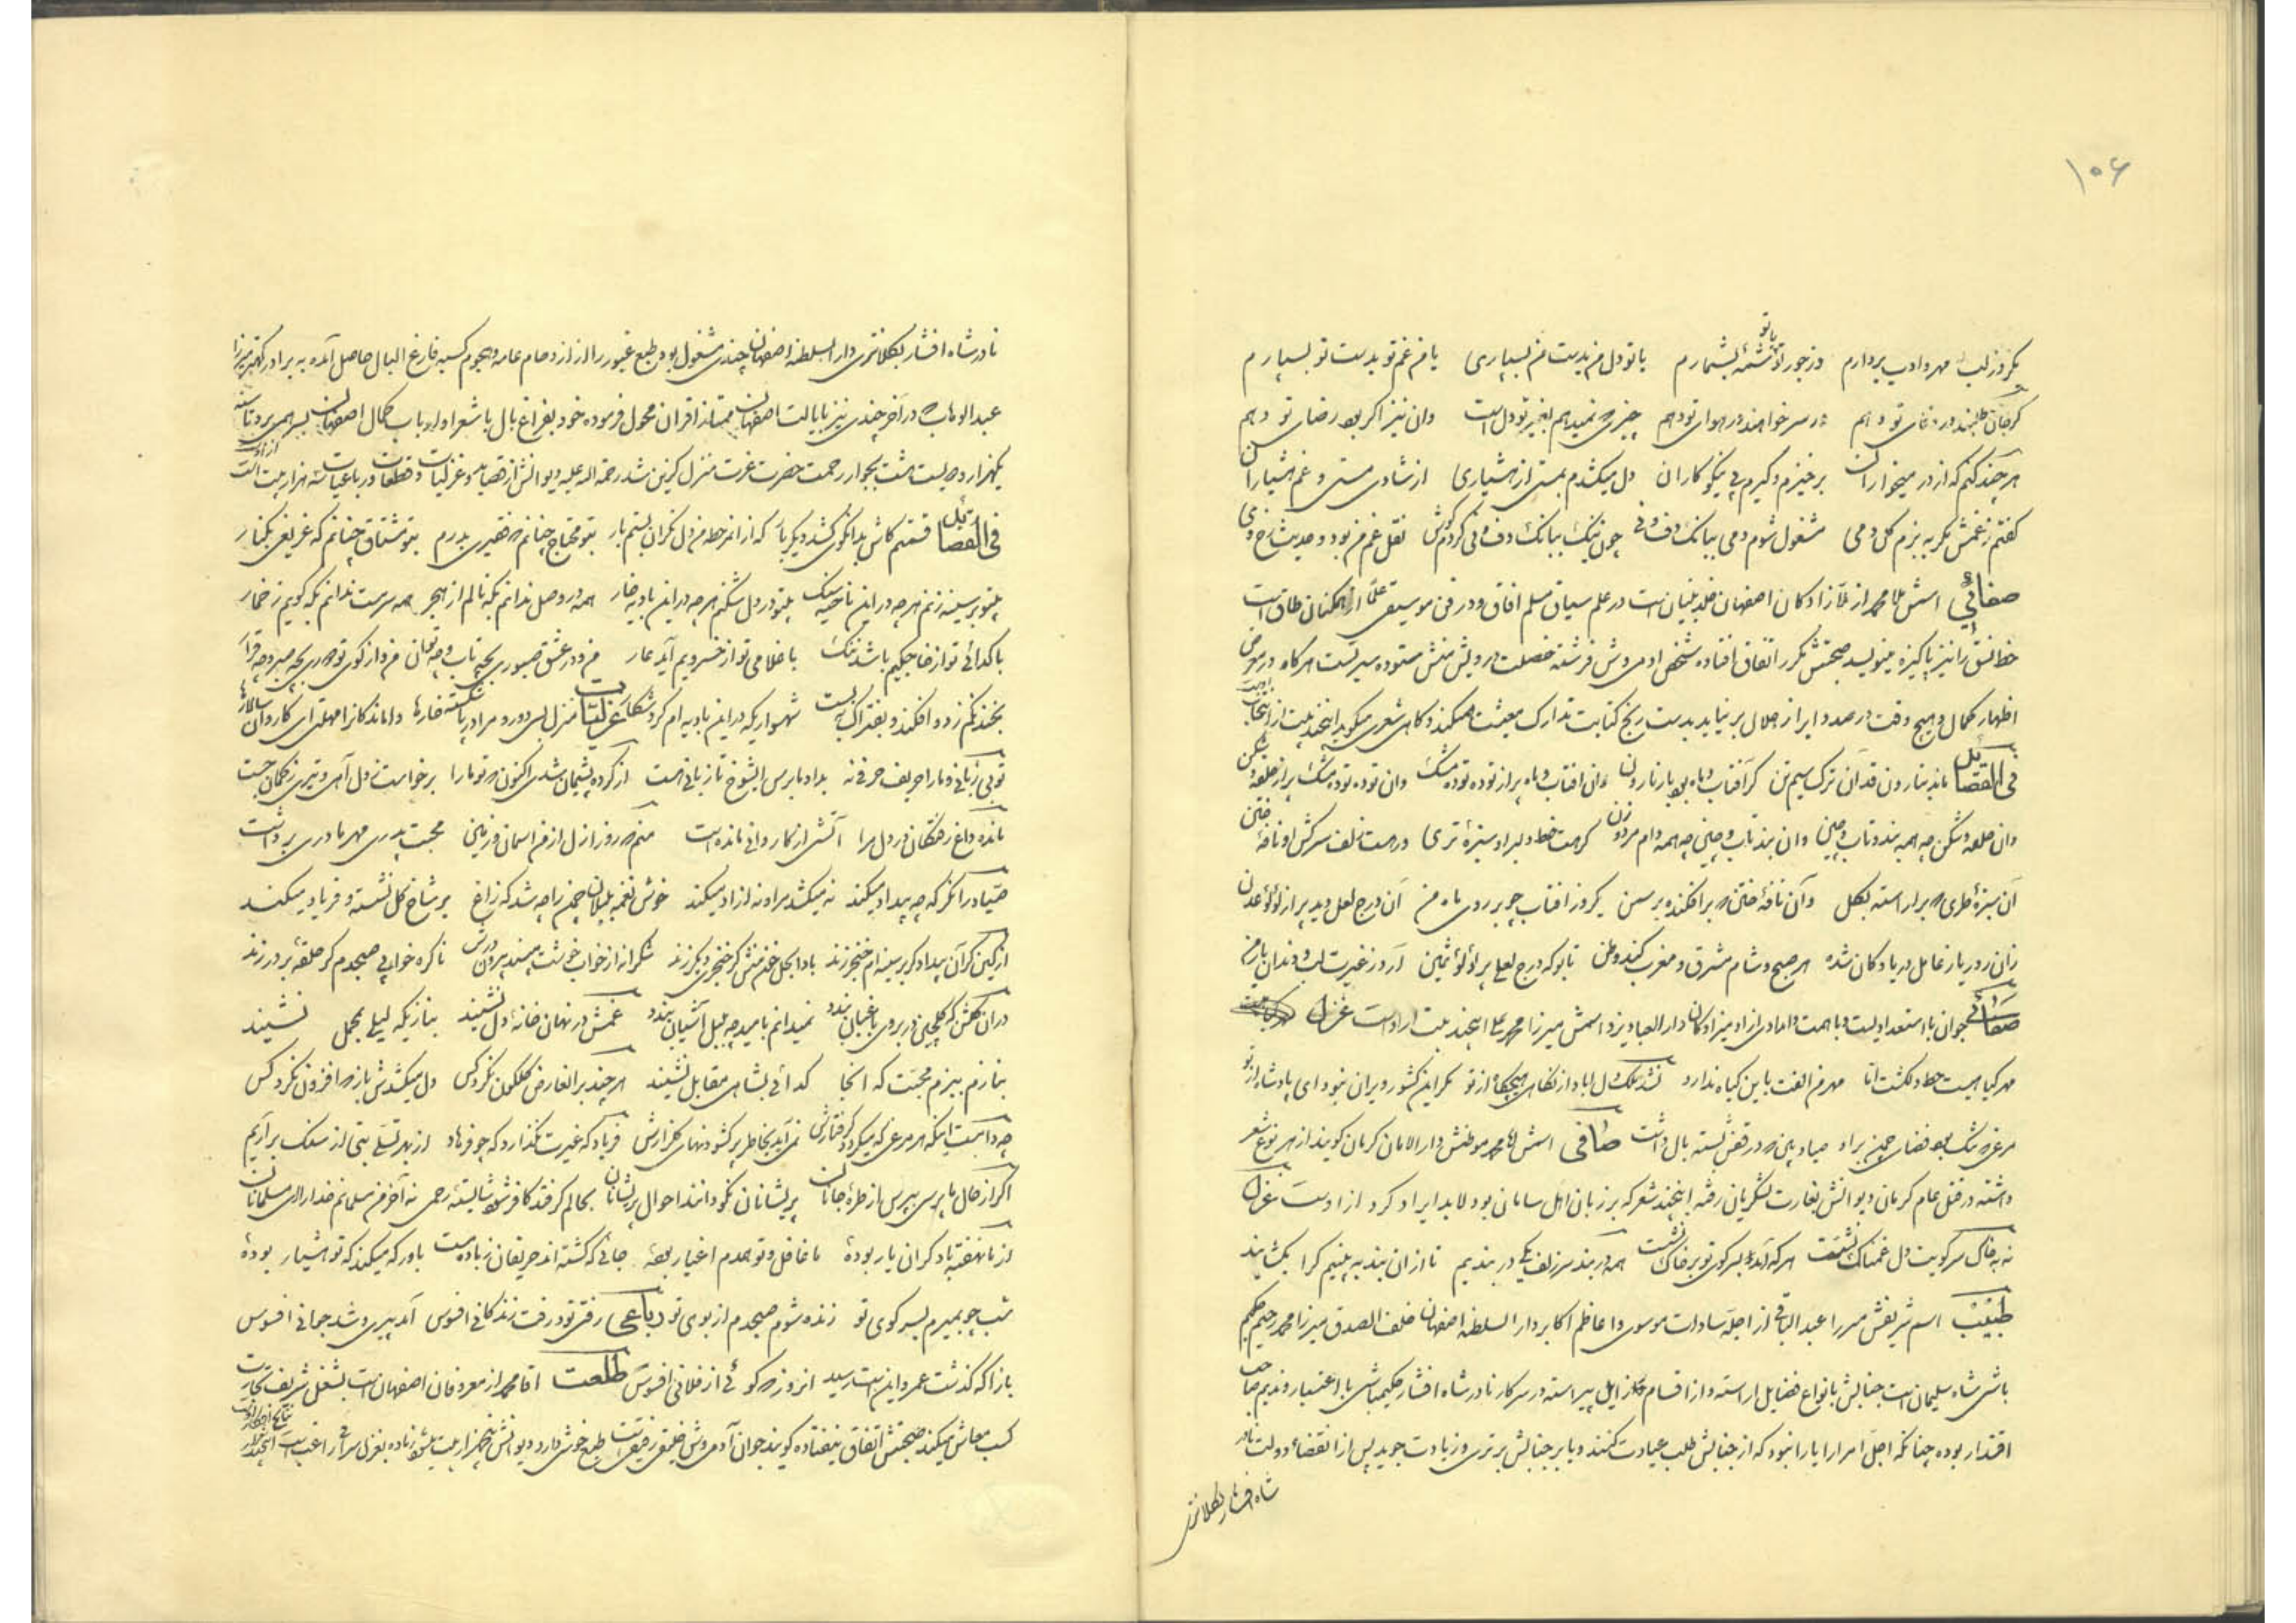 ۱۰۶
یکروز لب مهر و ادب بردارم وز جور تو شمهٔ بشمارم یا تو دل من بدست من بسپاری یا من غم تو بدست تو بسپارم
با تو
گر جان طلبند در وفای تو دهم ور سر خواهند در هوای تو دهم چیزی که نمیدهم بغیر تو دل است وان نیز اگر بود رضای تو دهم
هر چند کنم که از در میخواران برخیزم و گیرم پی نیکوکاران دل میکشدم بمستی از هشیاری از شادی مستی و غم هشیاران
گفتم ز غمش مگر به بزم گل و می مشغول شوم دمی ببانک دف و نی چون نیک ببانک دف و نی کردم گوش نقل غم من بود و حدیث رخ وی
صفائی اسمش ملا محمد از ملازادگان اصفهان خلد بنیان است در علم سیاق مسلم افاق و در فن موسیقی علماً از همکنان طاق است
خط نسق را نیز پاکیزه مینویسد صحبتش مکرر اتفاق افتاده شخص ادمی روش فرشته خصلت درویش منش ستوده سیرتست هر گاه در معرض
اظهار کمال و هیچ وقت در صدد ابراز جلال بر نیاید بدست رنج کتابت تدارک معیشت میکند و گاهی شعری میگوید اینچند بیت از انجناب است
فی القصائد ماند بنارون قد آن ترک سیم تن گر آفتاب و ماه بود بار نارون وان افتاب و ماه پر از توده توده مشک وان توده توده مشک پر از حلقه و شکن
وان حلقه و شکن چه همه بند و تاب و چین وان بند و تاب و چین چه همه دام مرد و زن گر هست خط دلبر او سبزهٔ تری ور هست زلف سرکش او نافهٔ ختن
آن سبزهٔ طری که بر اراسته بگل وآن نافهٔ ختن که بر افکنده بر سمن یکروز افتاب چو بر روی ماه من آن درج لعل دید پر از لؤلؤ عدن
زان رو دیار عامل دریا و کان شده هر صبح و شام مشرق و مغرب کند وطن تا بو که درج لعلی پر لؤلؤ ثمین آرد ز غیرت لب و دندان یار من
صفائی جوان با استعدادیست و با همت و اما در ازاد میرزادکان دار العباد یزد اسمش میرزا محمد علی اینچند بیت از اوست غزل
مهر گیاهیست خط دلکشت اما مهر من الفت باین گیاه ندارد نشد ملک دل اباد از نگاهی هیچگاه از تو مگر این کشور ویران نبود ای پادشاه از تو
مرغی که تنگ بود فضای چمن بر او صیاد بین که در قفس بسته بال داشت صافی اسمش ملا محمد موطنش دار الامان کرمان گویند از هر نوع شعر
داشته در قتل عام کرمان دیوانش بغارت لشکریان رفته اینچند شعر که بر زبان اهل سامان بود لابد ایراد کرد از اوست غزل
نه به خاک سر کویت دل غمناک نشست هر که آمد بسر کوی تو بر خاک نشست همه در بند سر زلف یکی در بندیم تا از ان بند به بینیم کرا بگشایند
طبیب اسم شریفش میرزا عبد الباقی از اجله سادات موسوی و اعاظم اکابر دار السلطنه اصفهان خلف الصدق میرزا محمد رحیم حکیم
باشی شاه سلیمان است جنابش بانواع فضایل اراسته و از اقسام رزایل پیراسته در سرکار نادر شاه افشار حکیمباشی با اعتبار و ندیم صاحب
اقتدار بوده چنانکه اجل امرا را یارا نبود که از جنابش طلب عیادت کنند و یا بر جنابش برتری و زیادت جوید پس از انقضاء دولت نادر
شاه افشار بکلانتری
نادر شاه افشار بکلانتری دار السلطنه اصفهان چندی مشغول بود طبع غیور را از ازدحام عامه و هجوم کسبه فارغ البال حاصل آمده به برادر کهتر میرزا
عبد الوهاب که در آخر چندی نیز بایالت اصفهان ممتاز اقران محول فرموده خود بفراغ بال با شعرا و ارباب کمال اصفهان بسر همی برد تا سنه
یکهزار و صد بیست هشت بجوار رحمت حضرت عزت منزل گزین شد رحمة الله علیه دیوانش از قصاید و غزلیات و قطعات و رباعیات سه هزار بیت است از اوست
فی القصائد قسمتم کاش بدانکوی کشد دیگر بار که از انمرحله من دل نگران بستم بار بتو محتاج چنانم که فقیری بدرم بتو مشتاق چنانم که غریقی بکنار
بیتو بر سینه زنم هر چه در این ناحیه سنک بیتو در دل شکنم هر چه در این بادیه خار همه در وصل ندانم بکه نالم از هجر همه سرمست ندانم بکه گویم ز خمار
با گدائی تو از خا جبکیم باشد ننک با غلامی تو از خسرویم آید عار من و در عشق صبوری بچه تاب و چه توان من و از کوی تو دوری بچه صبر و چه قرار
بخدنگم زد و افکند و بفتراک نبست شهسواریکه در این بادیه ام کرد شکار غزلیات منزل بسی دور و مرا در پا شکسته خارها واماندگانرا مهلتی ای کاروان سالارها
تو بی زبانی و ما را حریف حرفی نه بداد ما برس ایشوخ تا زبانی هست از کرده پشیمان شدی اکنون که تو ما را برخاست ز دل آهی و تیری ز کمان جست
مانده داغ رفتکان در دل مرا آتشی از کاروانی مانده است منم که روز ازل از من اسمان و زمین محبت پدری مهر مادری برداشت
صیاد را نگر که چه بیداد میکند نه میکشد مرا و نه ازاد میکند خوش نغمه بلبلان چمن را چه شد که زاغ بر شاخ گل نشسته و فریاد میکند
از کین گر آن بیداد گر بر سینه ام خنجر زند بادا بحل خون منش گر خنجری دیگر زند شکرانه از خواب خوشت بپسند بیرون درش ناکره خوابی صبحدم گر حلقهٔ بر در زند
در ان گلشن که گلچین در بروی باغبان بندد نمیدانم بامید چه بلبل آشیان بندد غمش در نهان خانهٔ دل نشیند بنازیکه لیلی بمحمل نشیند
بنازم ببزم محبت که انجا گدائی بشاهی مقابل نشیند هر چند بر انعارض گلگون نگرد کس دل میکشدش باز که افزون نگرد کس
چه دامست اینکه هر مرغی که میگردد گرفتارش نمی آید بخاطر پر گشودنهای گلزارش فریاد که غیرت نگذارد که چو فرهاد از بهر تسلی بتی از سنک براریم
اگر از حال ما پرسی بپرس از طرهٔ جانان پریشانان نکو دانند احوال پریشانان بحالم گر فتد کافر شود شایستهٔ رحمی نه آخر من مسلمانم خدا را ای مسلمانان
از ما نهفته با دگران یار بودهٔ ما غافل و تو همدم اغیار بودهٔ جائی که گشته اند حریفان ز باده مست باور که میکند که تو هشیار بودهٔ
شب چو بمیرم بسر کوی تو زنده شوم صبحدم از بوی تو رباعی رفتی تو و رفت زندگانی افسوس آمد پیری و شد جوانی افسوس
باز آ که گذشت عمر و این است رسید انروز که گوئی از فلانی افسوس طلعت اقا محمد از معروفان اصفهان است بشغل شریف تجارت
کسب معاش میکند صحبتش اتفاق نیفتاده گویند جوان آدمی روش خلیقی رفیقی است طبع خوشی دارد دیوانش پنجهزار بیت میشود زیاده بغزل سرائی راغب است اینچند بیت از نتایج افکار اوست